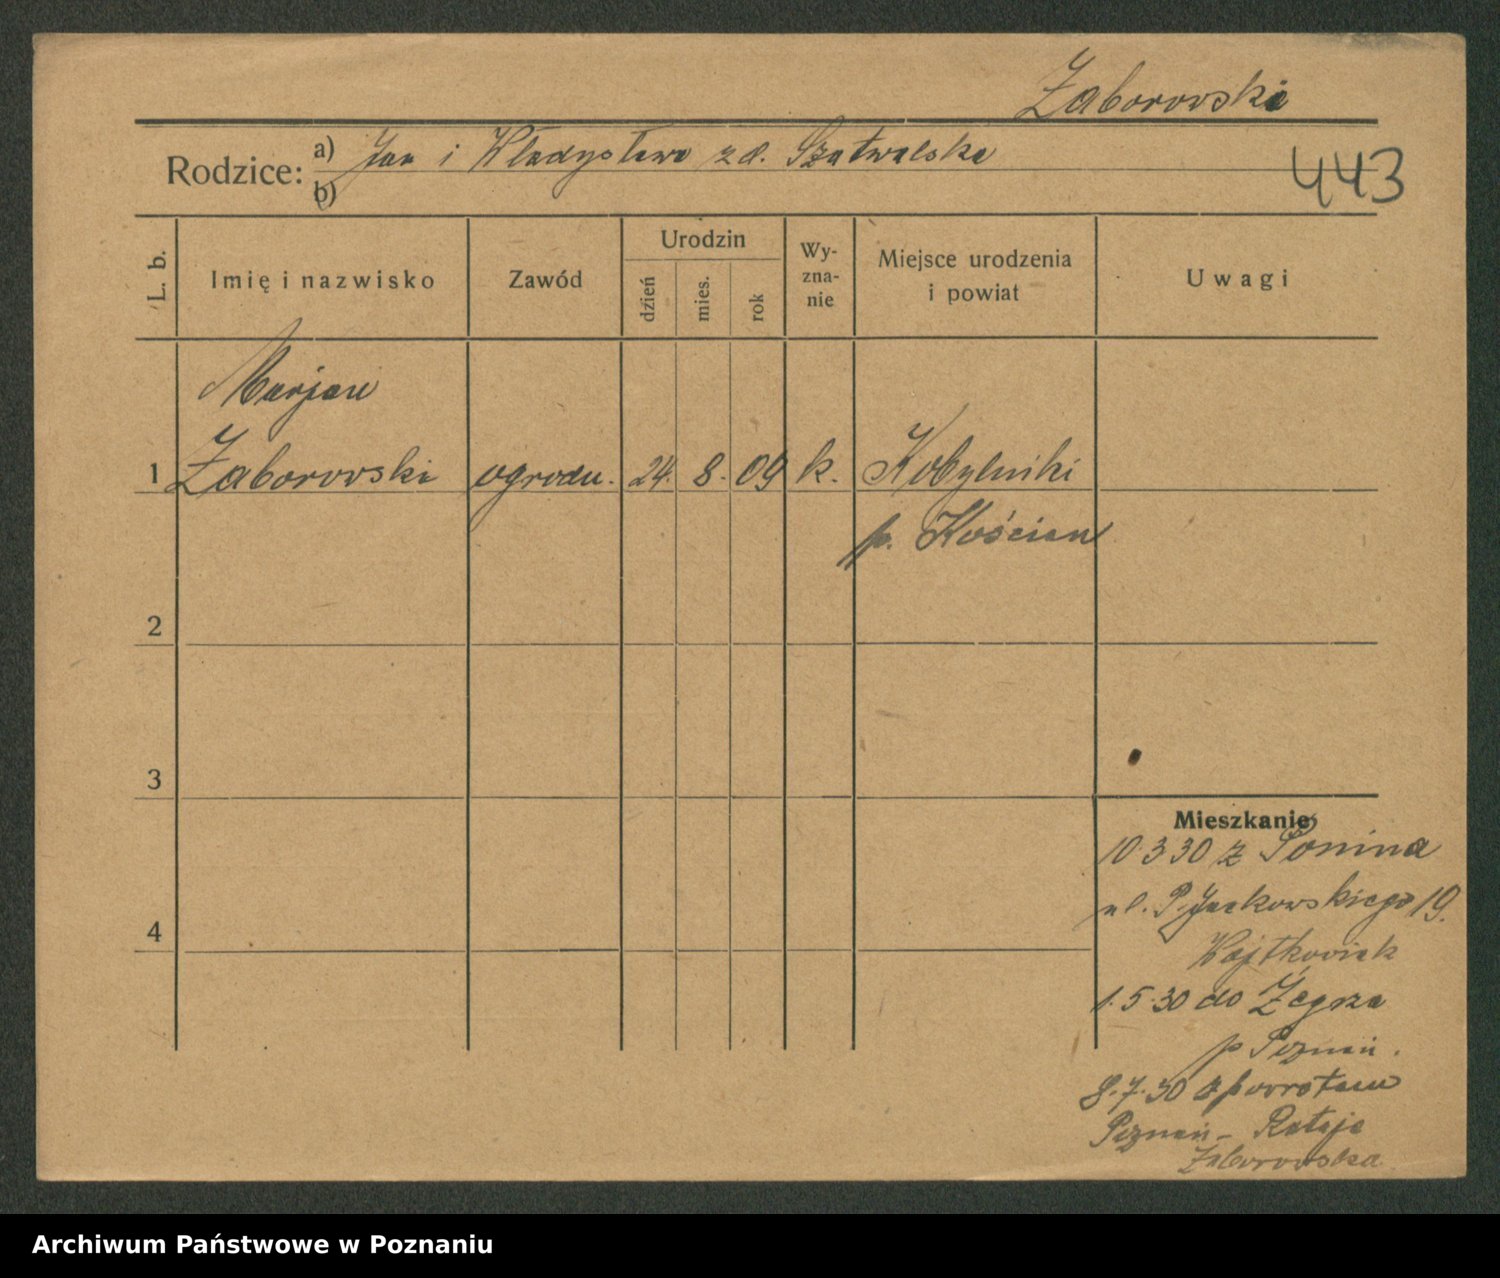 Zaborowski
Rodzice: a) Jan i Władysława z d. Szatwalska
b)
443
L. b.
Imię i nazwisko
Zawód
Urodzin
dzień
mies.
rok
Wy-
zna-
nie
Miejsce urodzenia
i powiat
Uwagi
Marjan
1 Zaborowski ogrodn. 24. 8. 09 k. Kobylniki
p. Kościan
2
3
4
Mieszkanie
10.3.30 z Ponina
ul. P. Jackowskiego 19.
Wojtkowiak
1.5.30 do Żegrza
p Poznań.
8.7.30 z powrotem
Poznań - Rataje
Zaborowska
Archiwum Państwowe w Poznaniu